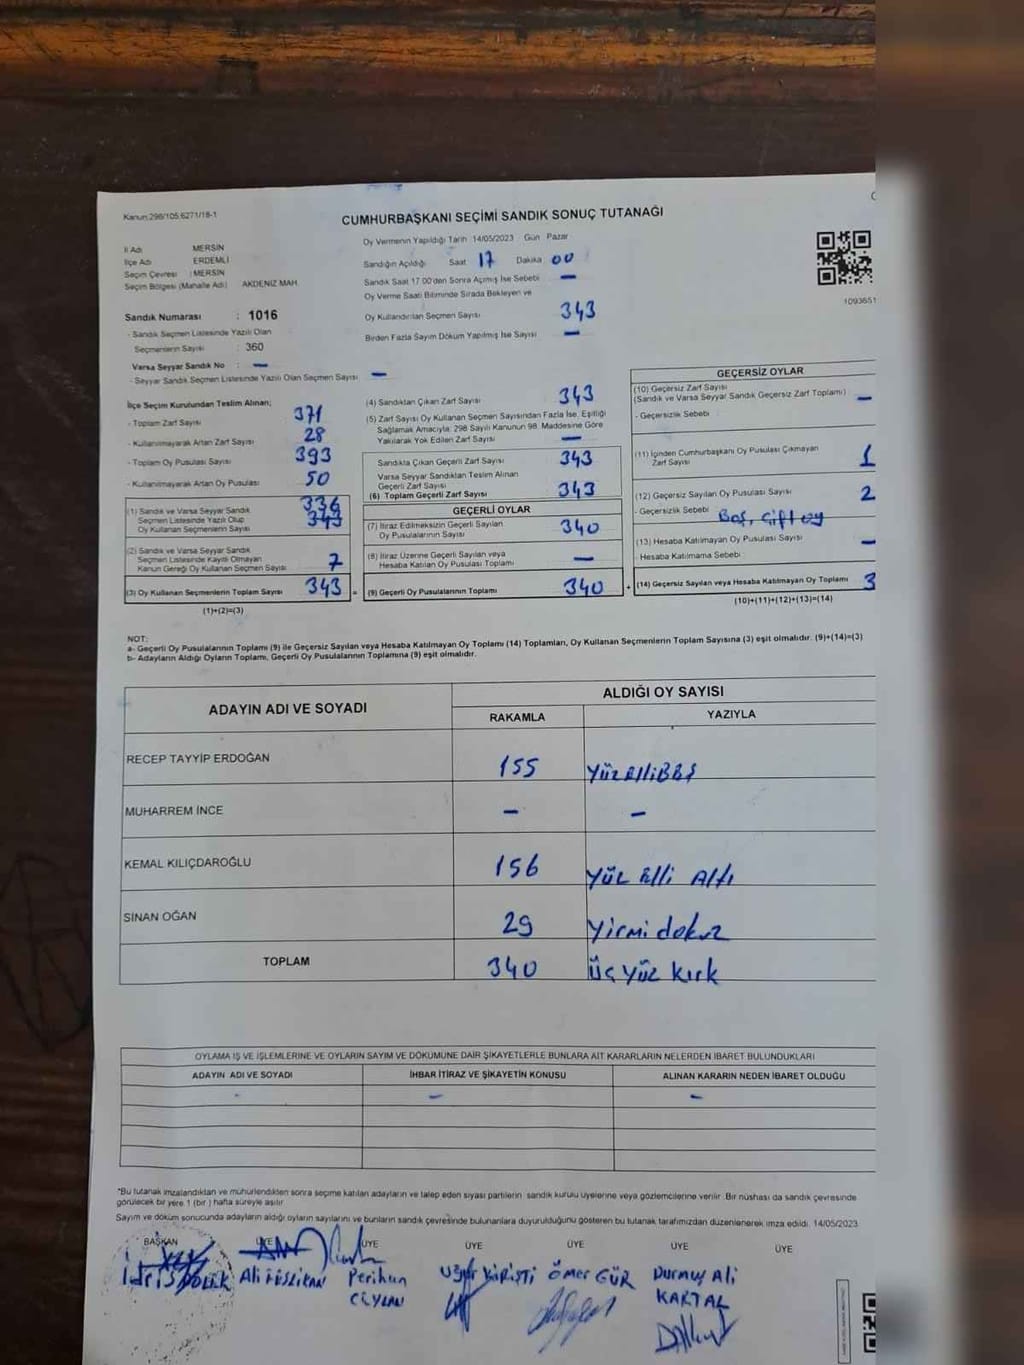 Kanun:298/105:6271/18-1
CUMHURBAŞKANI SEÇİMİ SANDIK SONUÇ TUTANAĞI
İl Adı MERSİN
İlçe Adı ERDEMLİ
Seçim Çevresi : MERSİN
Seçim Bölgesi (Mahalle Adı) AKDENİZ MAH.
Sandık Numarası : 1016
- Sandık Seçmen Listesinde Yazılı Olan
Seçmenlerin Sayısı : 360
Varsa Seyyar Sandık No : -
- Seyyar Sandık Seçmen Listesinde Yazılı Olan Seçmen Sayısı -
Oy Vermenin Yapıldığı Tarih 14/05/2023 Gün Pazar
Sandığın Açıldığı Saat 17 Dakika 00
Sandık Saat 17:00'den Sonra Açılmış İse Sebebi -
Oy Verme Saati Bitiminde Sırada Bekleyen ve
Oy Kullandırılan Seçmen Sayısı 343
Birden Fazla Sayım Döküm Yapılmış İse Sayısı -
1093651
İlçe Seçim Kurulundan Teslim Alınan;
- Toplam Zarf Sayısı 371
- Kullanılmayarak Artan Zarf Sayısı 28
- Toplam Oy Pusulası Sayısı 393
- Kullanılmayarak Artan Oy Pusulası 50
(1) Sandık ve Varsa Seyyar Sandık
Seçmen Listesinde Yazılı Olup
Oy Kullanan Seçmenlerin Sayısı
336
343
(2) Sandık ve Varsa Seyyar Sandık
Seçmen Listesinde Kayıtlı Olmayan
Kanun Gereği Oy Kullanan Seçmen Sayısı 7
(3) Oy Kullanan Seçmenlerin Toplam Sayısı 343 =
(1)+(2)=(3)
(4) Sandıktan Çıkan Zarf Sayısı 343
(5) Zarf Sayısı Oy Kullanan Seçmen Sayısından Fazla İse, Eşitliği
Sağlamak Amacıyla; 298 Sayılı Kanunun 98. Maddesine Göre
Yakılarak Yok Edilen Zarf Sayısı -
Sandıkta Çıkan Geçerli Zarf Sayısı 343
Varsa Seyyar Sandıktan Teslim Alınan
Geçerli Zarf Sayısı
(6) Toplam Geçerli Zarf Sayısı 343
GEÇERLİ OYLAR
(7) İtiraz Edilmeksizin Geçerli Sayılan
Oy Pusulalarının Sayısı 340
(8) İtiraz Üzerine Geçerli Sayılan veya
Hesaba Katılan Oy Pusulası Toplamı -
(9) Geçerli Oy Pusulalarının Toplamı 340 +
GEÇERSİZ OYLAR
(10) Geçersiz Zarf Sayısı
(Sandık ve Varsa Seyyar Sandık Geçersiz Zarf Toplamı) -
- Geçersizlik Sebebi
(11) İçinden Cumhurbaşkanı Oy Pusulası Çıkmayan
Zarf Sayısı 1
(12) Geçersiz Sayılan Oy Pusulası Sayısı 2
- Geçersizlik Sebebi Boş, Çift oy
(13) Hesaba Katılmayan Oy Pusulası Sayısı -
- Hesaba Katılmama Sebebi
(14) Geçersiz Sayılan veya Hesaba Katılmayan Oy Toplamı 3
(10)+(11)+(12)+(13)=(14)
NOT:
a- Geçerli Oy Pusulaları Toplamı (9) ile Geçersiz Sayılan veya Hesaba Katılmayan Oy Toplamı (14) Toplamları, Oy Kullanan Seçmenlerin Toplam Sayısına (3) eşit olmalıdır. (9)+(14)=(3)
b- Adayların Aldığı Oyların Toplamı, Geçerli Oy Pusulalarının Toplamına (9) eşit olmalıdır.
ADAYIN ADI VE SOYADI ALDIĞI OY SAYISI
RAKAMLA YAZIYLA
RECEP TAYYİP ERDOĞAN 155 YüzelliBEŞ
MUHARREM İNCE - -
KEMAL KILIÇDAROĞLU 156 Yüz Elli Altı
SİNAN OĞAN 29 Yirmi dokuz
TOPLAM 340 üç yüz kırk
OYLAMA İŞ VE İŞLEMLERİNE VE OYLARIN SAYIM VE DÖKÜMÜNE DAİR ŞİKAYETLERLE BUNLARA AİT KARARLARIN NELERDEN İBARET BULUNDUKLARI
ADAYIN ADI VE SOYADI İHBAR İTİRAZ VE ŞİKAYETİN KONUSU ALINAN KARARIN NEDEN İBARET OLDUĞU
- - -
*Bu tutanak imzalandıktan ve mühürlendikten sonra seçime katılan adayların ve talep eden siyasi partilerin sandık kurulu üyelerine veya gözlemcilerine verilir. Bir nüshası da sandık çevresinde
görülecek bir yere 1 (bir) hafta süreyle asılır.
Sayım ve döküm sonucunda adayların aldığı oyların sayılarını ve bunların sandık çevresinde bulunanlara duyurulduğunu gösteren bu tutanak tarafımızdan düzenlenerek imza edildi. 14/05/2023
BAŞKAN ÜYE ÜYE ÜYE ÜYE ÜYE ÜYE
İdris Ali Perihan Uğur Ömer GÜR Durmuş Ali
CEYLAN KARTAL